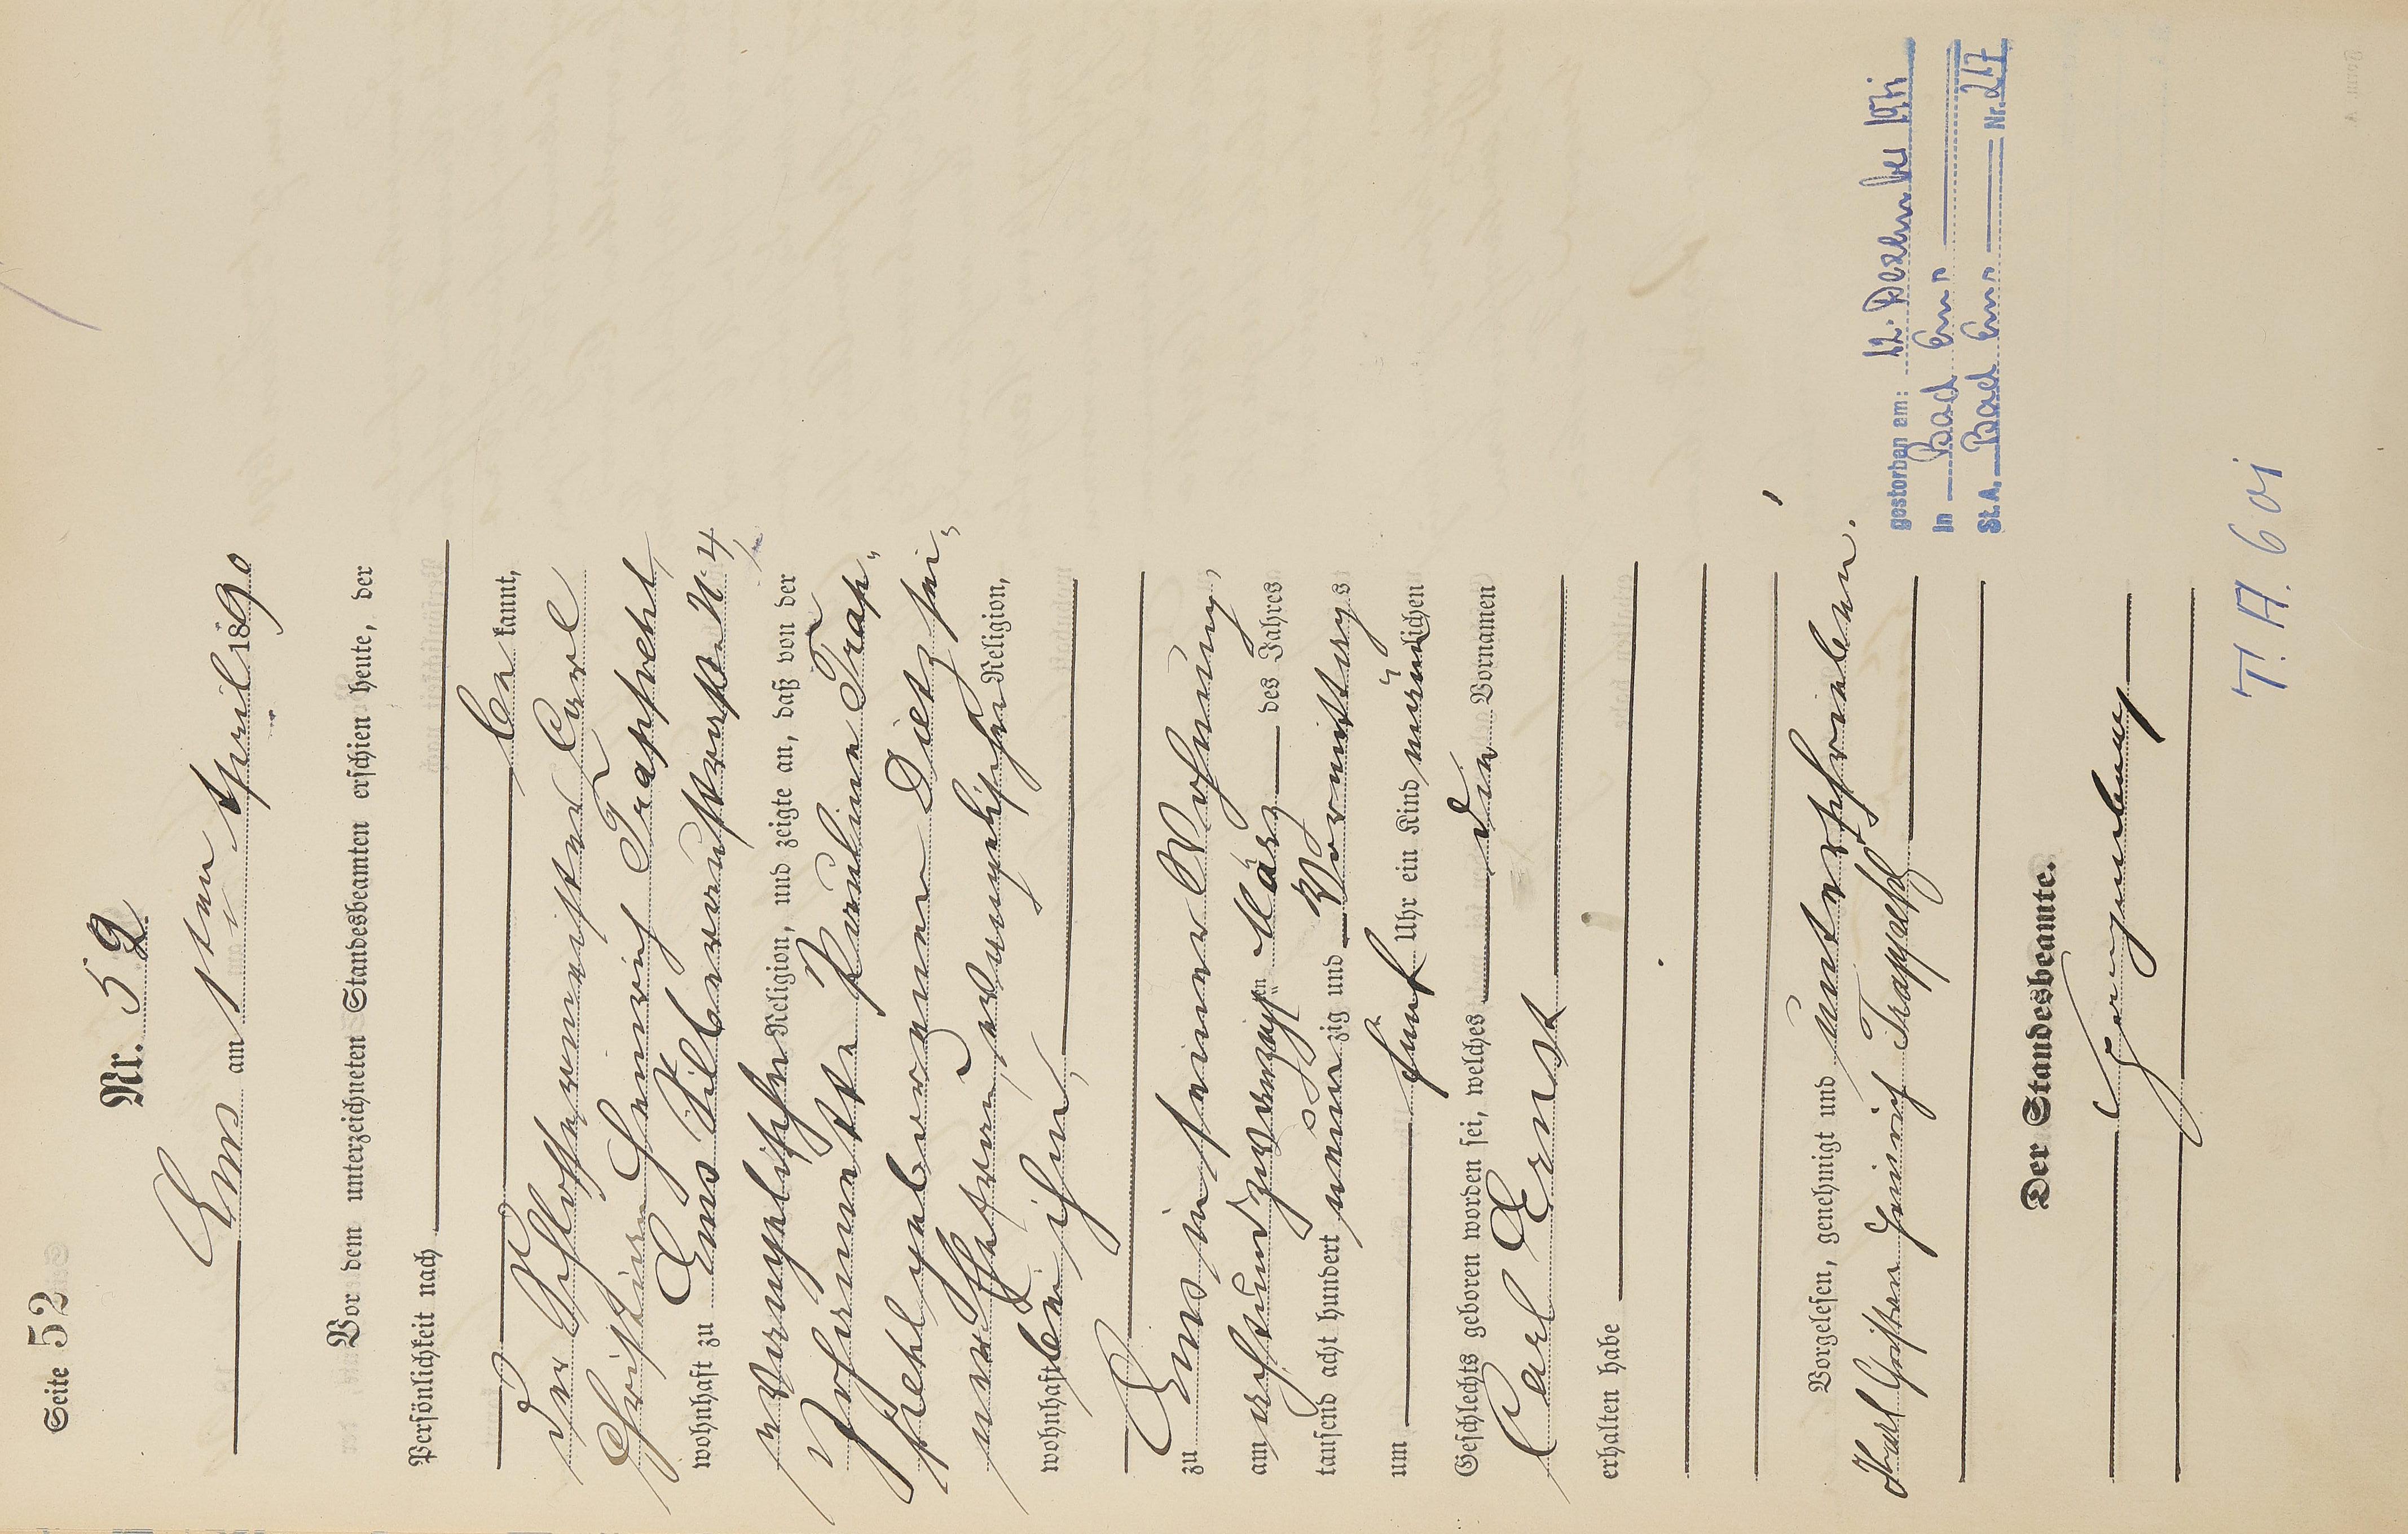 Seite 52
Nr. 52
Ems am 1ten April 1890
Vor dem unterzeichneten Standesbeamten erschien heute, der
Persönlichkeit nach
be kannt,
der Schlossermeister Carl
Christian Heinrich Trapphehl
wohnhaft zu Ems Silberaustraße N 4
evangelischer Religion, und zeigte an, daß von der
Johannette Pauline Trap-
phehl geborenen Dietz sei-
ner Ehefrau, evangelischer Religion,
wohnhaft bei ihm,
zu Ems in seiner Wohnung,
am achtundzwanzigsten März des Jahres
tausend acht hundert neunzig und Vormittags
um fünf Uhr ein Kind männlichen
Geschlechts geboren worden sei, welches die Vornamen
Carl Ernst
erhalten habe
Vorgelesen, genehmigt und unterschrieben.
Karl Christian Heinrich Trappehl
Der Standesbeamte.
gestorben am: 12. Dezember 1971
in Bad Ems
St.A. Bad Ems Nr. 217
T. A. 601